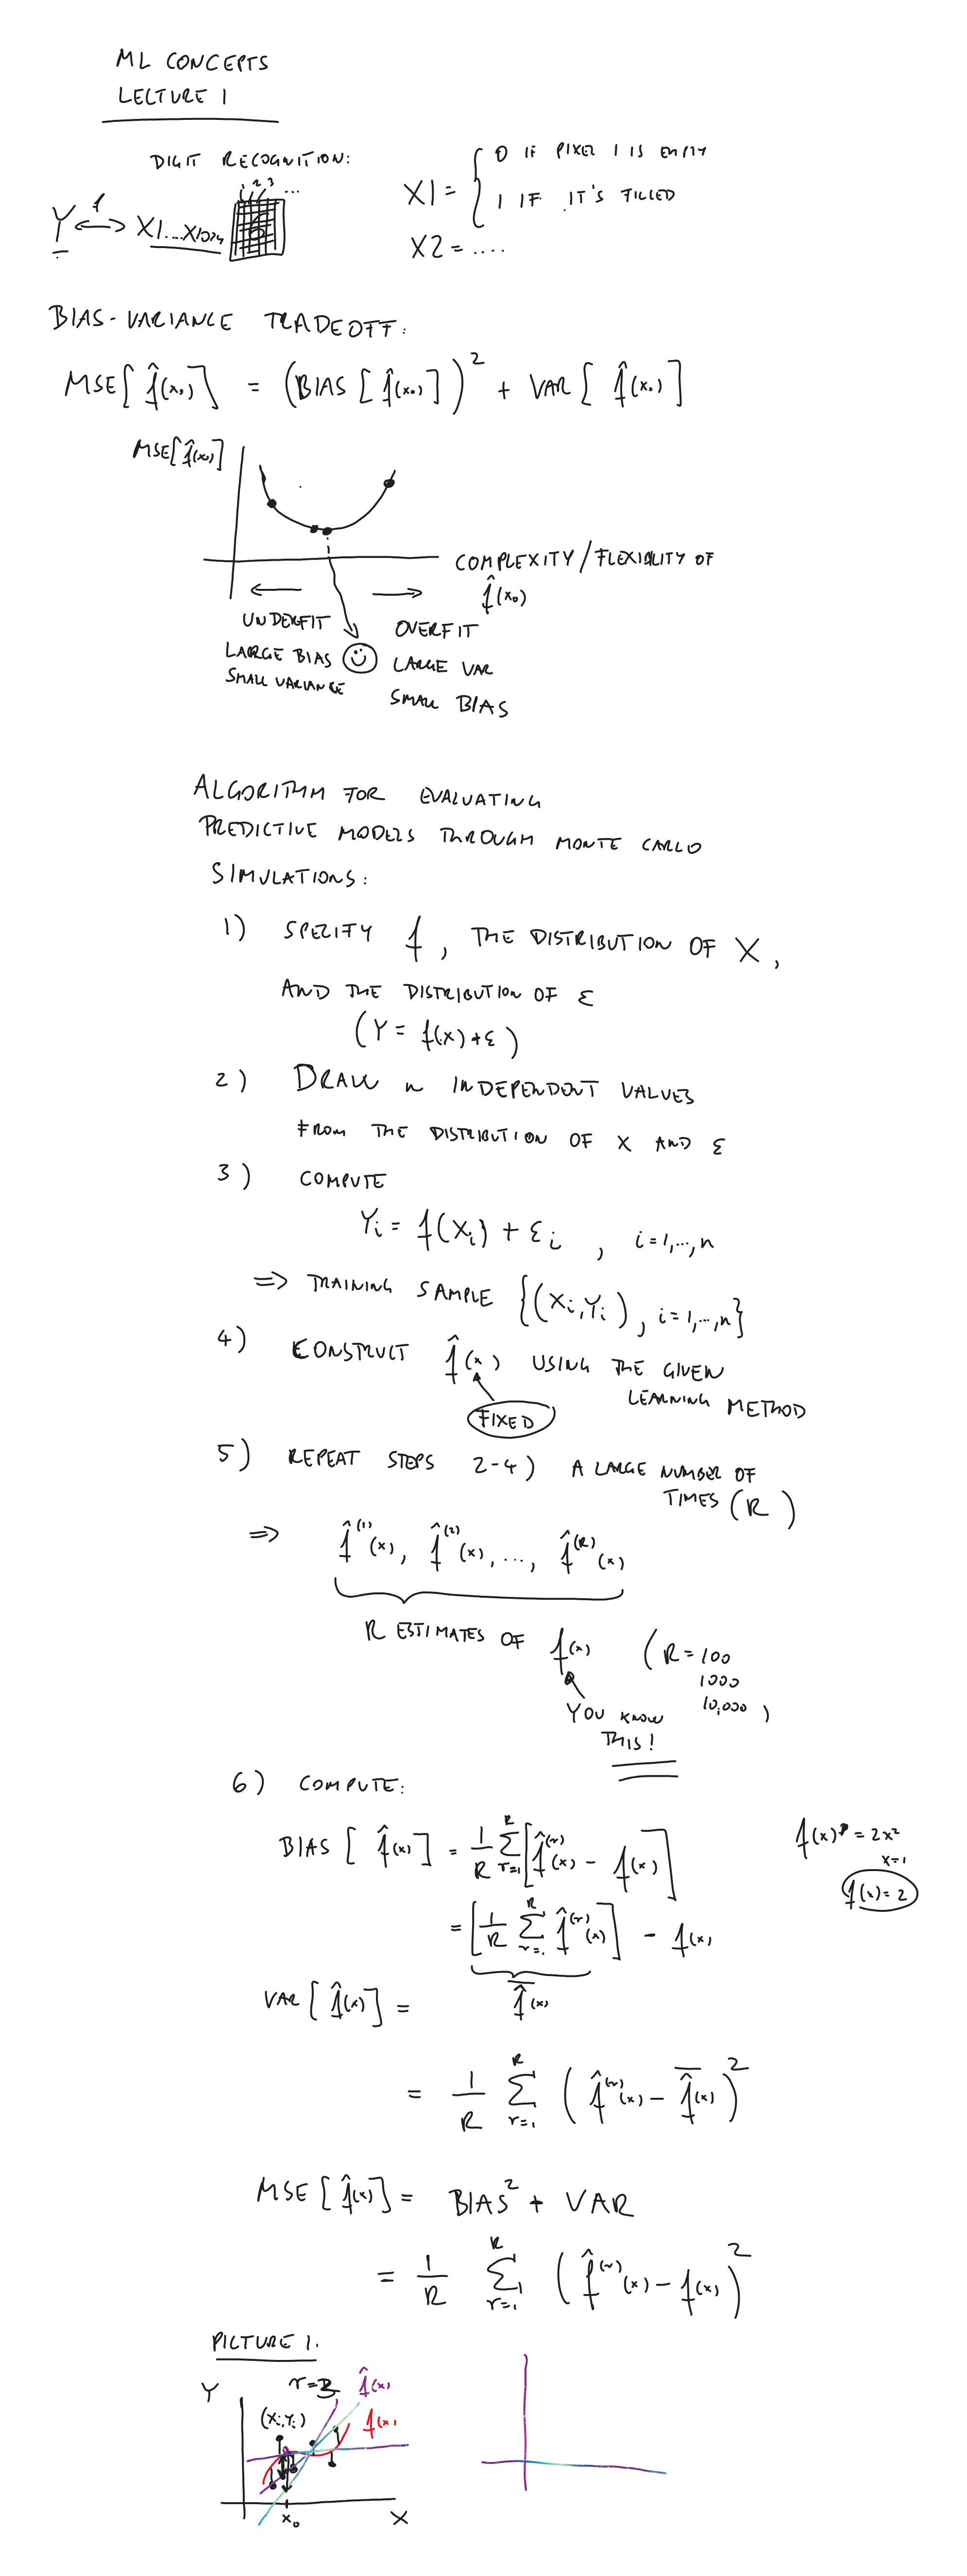 ML CONCEPTS
LECTURE 1
DIGIT RECOGNITION:
1 2 3 ...
Y ⟷ X1....X1024
f
X1 = { 0 IF PIXEL 1 IS EMPTY
1 IF IT'S FILLED
X2 = ....
BIAS-VARIANCE TRADEOFF:
MSE[f̂(x₀)] = (BIAS[f̂(x₀)])² + VAR[f̂(x₀)]
MSE[f̂(x₀)]
COMPLEXITY/FLEXIBLITY OF
f̂(x₀)
UNDERFIT
LARGE BIAS
SMALL VARIANCE
OVERFIT
LARGE VAR
SMALL BIAS
ALGORITHM FOR EVALUATING
PREDICTIVE MODELS THROUGH MONTE CARLO
SIMULATIONS:
1) SPECIFY f, THE DISTRIBUTION OF X,
AND THE DISTRIBUTION OF ε
(Y = f(x) + ε)
2) DRAW n INDEPENDENT VALUES
FROM THE DISTRIBUTION OF X AND ε
3) COMPUTE
Yi = f(Xi) + εi , i=1,...,n
=> TRAINING SAMPLE {(Xi,Yi), i=1,...,n}
4) CONSTRUCT f̂(x) USING THE GIVEN
LEARNING METHOD
FIXED
5) REPEAT STEPS 2-4) A LARGE NUMBER OF
TIMES (R)
=> f̂⁽¹⁾(x), f̂⁽²⁾(x), ..., f̂⁽ᴿ⁾(x)
R ESTIMATES OF f(x) (R = 100
1000
10,000)
YOU KNOW
THIS!
6) COMPUTE:
BIAS[f̂(x)] = 1/R Σ_{r=1}^{R} [f̂⁽ʳ⁾(x) - f(x)]
f(x) = 2x²
x=1
f(x) = 2
= [1/R Σ_{r=1}^{R} f̂⁽ʳ⁾(x)] - f(x)
f̂̄(x)
VAR[f̂(x)] =
= 1/R Σ_{r=1}^{R} (f̂⁽ʳ⁾(x) - f̂̄(x))²
MSE[f̂(x)] = BIAS² + VAR
= 1/R Σ_{r=1}^{R} (f̂⁽ʳ⁾(x) - f(x))²
PICTURE 1.
Y
r=3
f̂(x)
(Xi,Yi)
f(x)
x₀
X